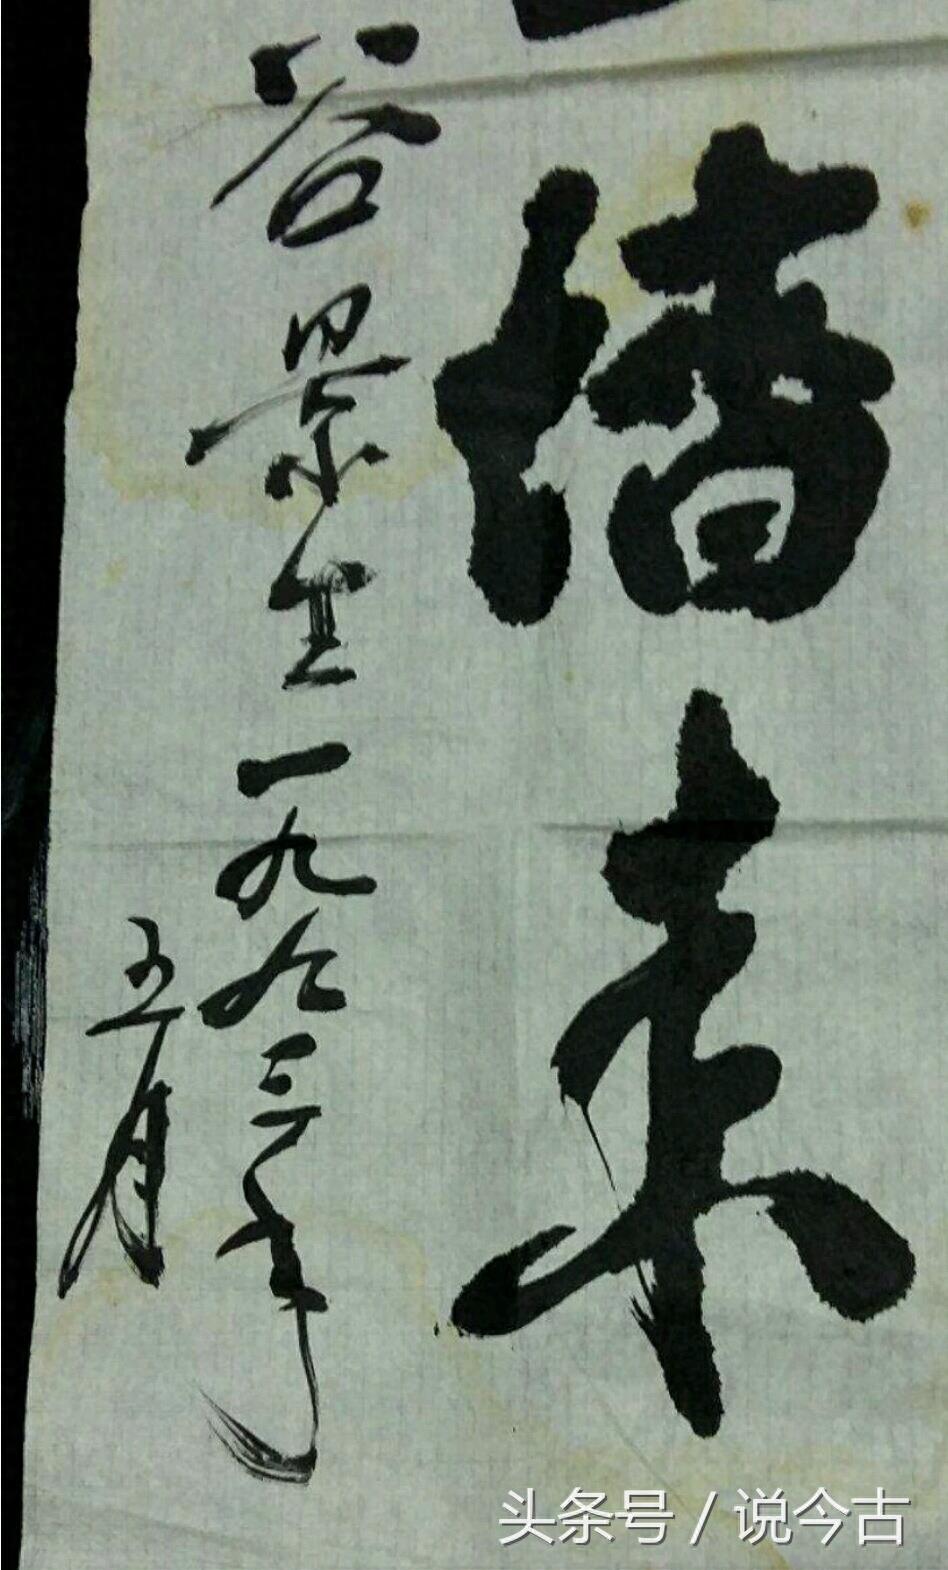 墙来
谷景生一九九三年
五月
头条号 / 说今古